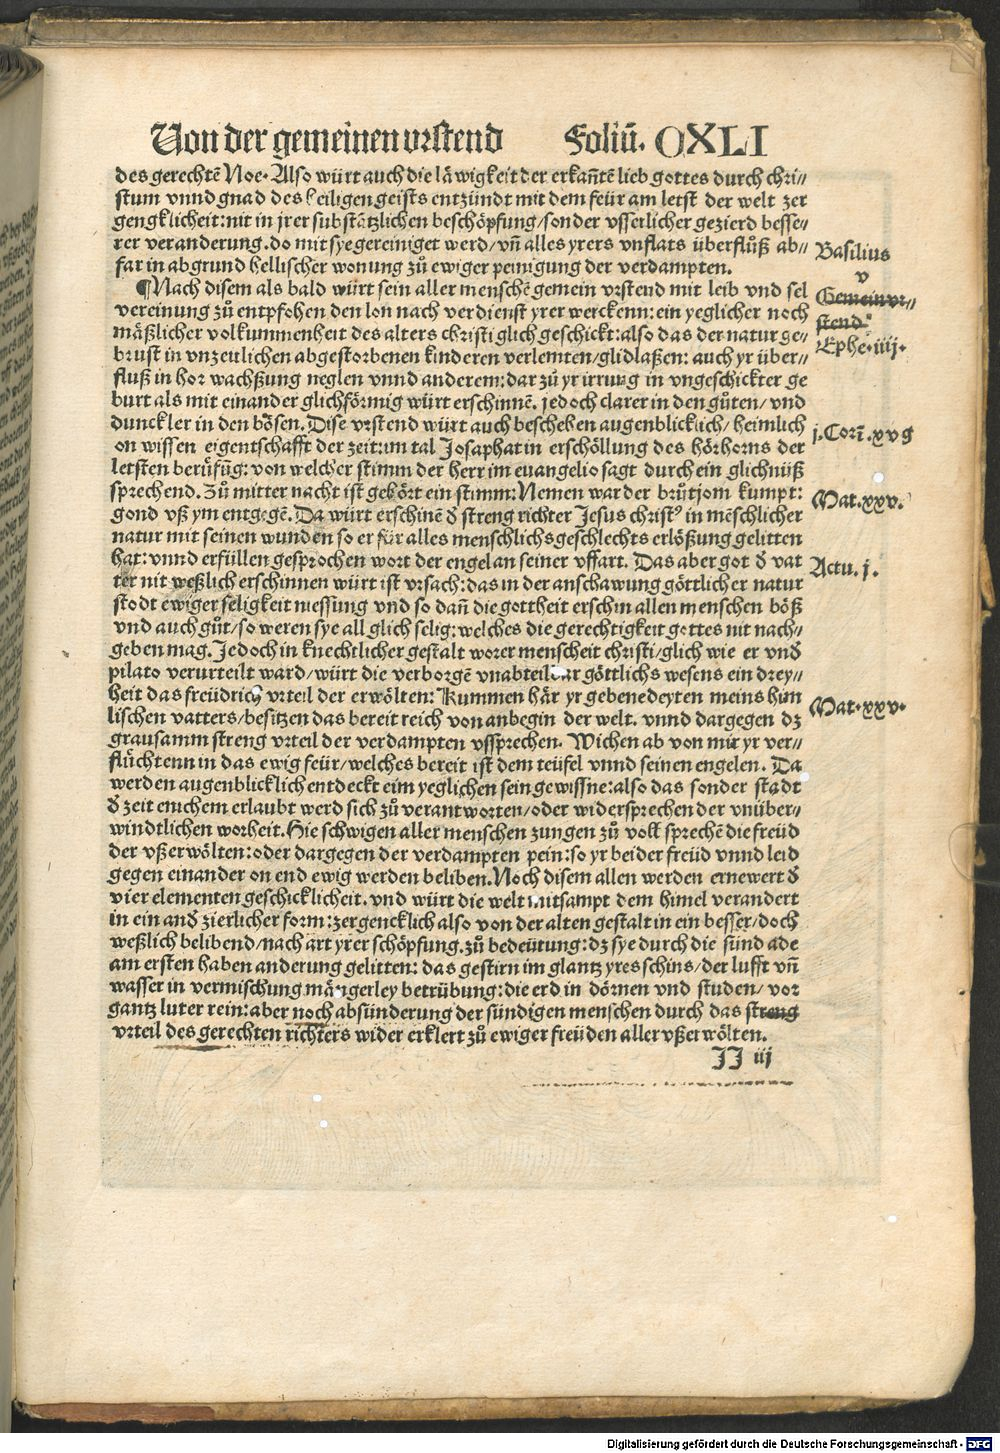 Von der gemeinen vrstend Foliū. OXLI
des gerechtē Noe. Also würt auch die låwigkeit der erkañtē lieb gottes durch chri⸗
stum vnnd gnad des heiligen geists entzündt mit dem feür am letst der welt zer
gengklicheit: mit in jrer substētzlichen beschöpfung/ sonder vsserlicher gezierd besse⸗
rer veranderung. do mit sye gereiniget werd/ vñ alles yrers vnflats überflůß ab⸗
far in abgrund hellischer wonung zů ewiger peinigung der verdampten.
Basilius
v
¶Nach disem als bald würt sein aller menschē gemein vrstend mit leib vnd sel
Gemein vr⸗
vereinung zů entpfohen den lon nach verdienst yrer werck enn: ein yeglicher noch
stend.
mäßlicher volkummenheit des alters christi glich geschickt: also das der natur ge⸗
Ephe. iiij.
brust in vnzeitlichen abgestorbenen kinderen verlemten/ glidlaßen: auch yr über⸗
fluß in hor wachßung neglen vnnd anderem: dar zů yr irrung in vngeschickter ge
burt als mit einander glichförmig würt erschinnē. jedoch clarer in den gůten/ vnd
dunckler in den bösen. Dise vrstend würt auch beschehen augenblicklich/ heimlich
j. Corī. xv g
on wissen eigentschafft der zeit: im tal Josaphat in erschöllung des hörhorns der
letsten berůfūg: von welcher stimm der herr im euangelio sagt durch ein glichnüß
sprechend. Zů mitter nacht ist gehört ein stimm: Nemen war der brůtjom kumpt:
Mat. xxv.
gond vß ym entgegē. Da würt erschinē d̄ streng richter Jesus christꝰ in mēschlicher
natur mit seinen wunden so er für alles menschlichs geschlechts erlößung gelitten
hat: vnnd erfüllen gesprochen wort der engel an seiner vffart. Das aber got d̄ vat
Actu. j.
ter nit weßlich erschinnen würt ist vrsach: das in der anschawung göttlicher natur
stodt ewiger seligkeit niessung vnd so dañ die gottheit erschin allen menschen böß
vnd auch gůt/ so weren sye all glich selig: welches die gerechtigkeit gottes nit nach⸗
geben mag. Jedoch in knechtlicher gestalt worer menscheit christi/ glich wie er vnd̄
pilato verurteilt ward/ würt die verborgē vnabteilbar göttlichs wesens ein drey⸗
heit das freüdrich vrteil der erwölten: Kummen här yr gebenedeyten meins him
Mat. xxv.
lischen vatters/ besitzen das bereit reich von anbegin der welt. vnnd dargegen dz
grausamm streng vrteil der verdampten vssprechen. Wichen ab von mir yr ver⸗
flůchtenn in das ewig feür/ welches bereit ist dem teüfel vnnd seinen engelen. Da
werden augenblicklich entdeckt eim yeglichen sein gewissne: also das sonder stadt
d̄ zeit enichem erlaubt werd sich zů verantworten/ oder widersprechen der vnüber⸗
windtlichen worheit. Hie schwigen aller menschen zungen zů voll sprechē die freüd
der vßerwölten: oder dargegen der verdampten pein: so yr beider freüd vnnd leid
gegen einander on end ewig werden beliben. Noch disem allen werden ernewert d̄
vier elementen geschicklicheit. vnd würt die welt mitsampt dem himel verandert
in ein and̄ zierlicher form: zergencklich also von der alten gestalt in ein besser/ doch
weßlich belibend/ nach art yrer schöpfung. zů bedeütung: dz sye durch die sünd ade
am ersten haben anderung gelitten: das gestirn im glantz yres schins/ der lufft vñ
wasser in vermischung mängerley betrübung: die erd in dörnen vnd studen/ vor
gantz luter rein: aber noch absünderung der sündigen menschen durch das streng
vrteil des gerechten richters wider erklert zů ewiger freüden aller vßerwölten.
JJ iij
Digitalisierung gefördert durch die Deutsche Forschungsgemeinschaft - DFG